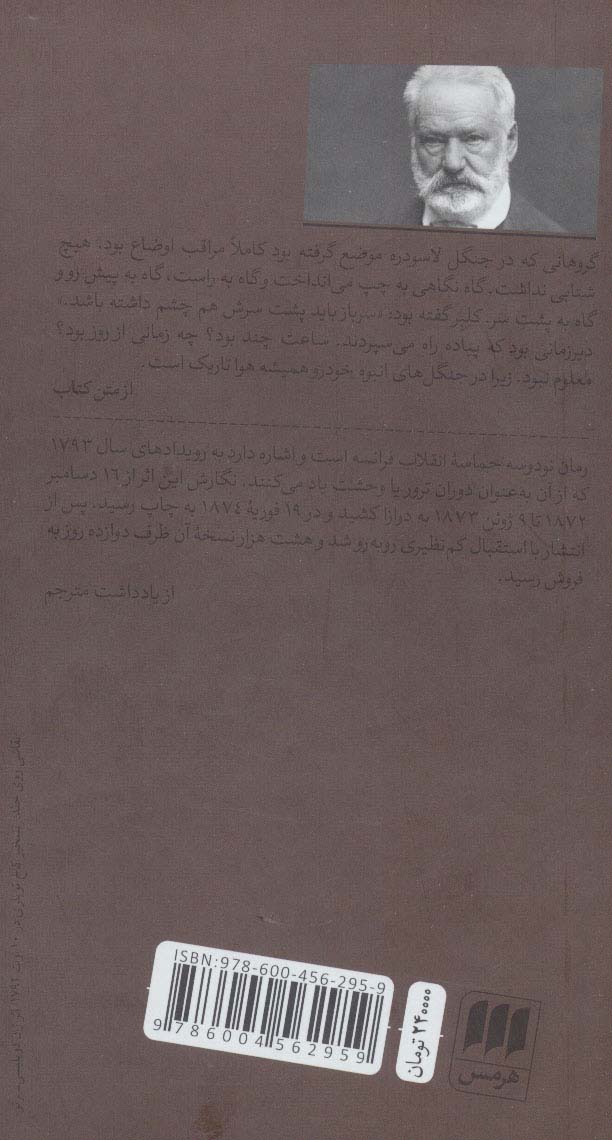 گروهانی که در جنگل لاسودره موضع گرفته بود کاملاً مراقب اوضاع بود. هیچ
شتابی نداشت. گاه نگاهی به چپ می‌انداخت و گاه به راست، گاه به پیش‌رو و
گاه به پشت سر. کلبر گفته بود: «سرباز باید پشت سرش هم چشم داشته باشد.»
دیرزمانی بود که پیاده راه می‌سپردند. ساعت چند بود؟ چه زمانی از روز بود؟
معلوم نبود. زیرا در جنگل‌های انبوه خودرو همیشه هوا تاریک است.
از متن کتاب
رمان نودوسه حماسهٔ انقلاب فرانسه است و اشاره دارد به رویدادهای سال ۱۷۹۳
که از آن به‌عنوان دوران ترور یا وحشت یاد می‌کنند. نگارش این اثر از ۱۶ دسامبر
۱۸۷۲ تا ۹ ژوئن ۱۸۷۳ به درازا کشید و در ۱۹ فوریهٔ ۱۸۷۴ به چاپ رسید. پس از
انتشار با استقبال کم‌نظیری روبه‌رو شد و هشت هزار نسخهٔ آن ظرف دوازده روز به
فروش رسید.
از یادداشت مترجم
نقاشی روی جلد: تسخیر کاخ تویلری در ۱۰ اوت ۱۷۹۲
ISBN:978-600-456-295-9
9 786004 562959
۲۴۰۰۰۰ تومان
هرمس